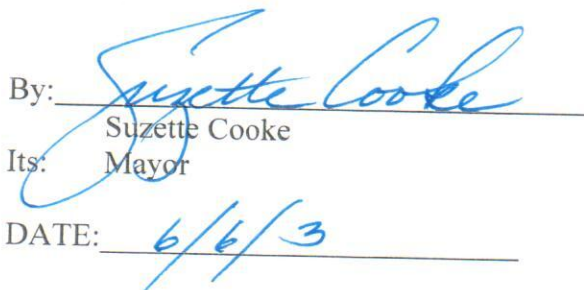 By: Suzette Cooke
Suzette Cooke
Its: Mayor
DATE: 6/6/3